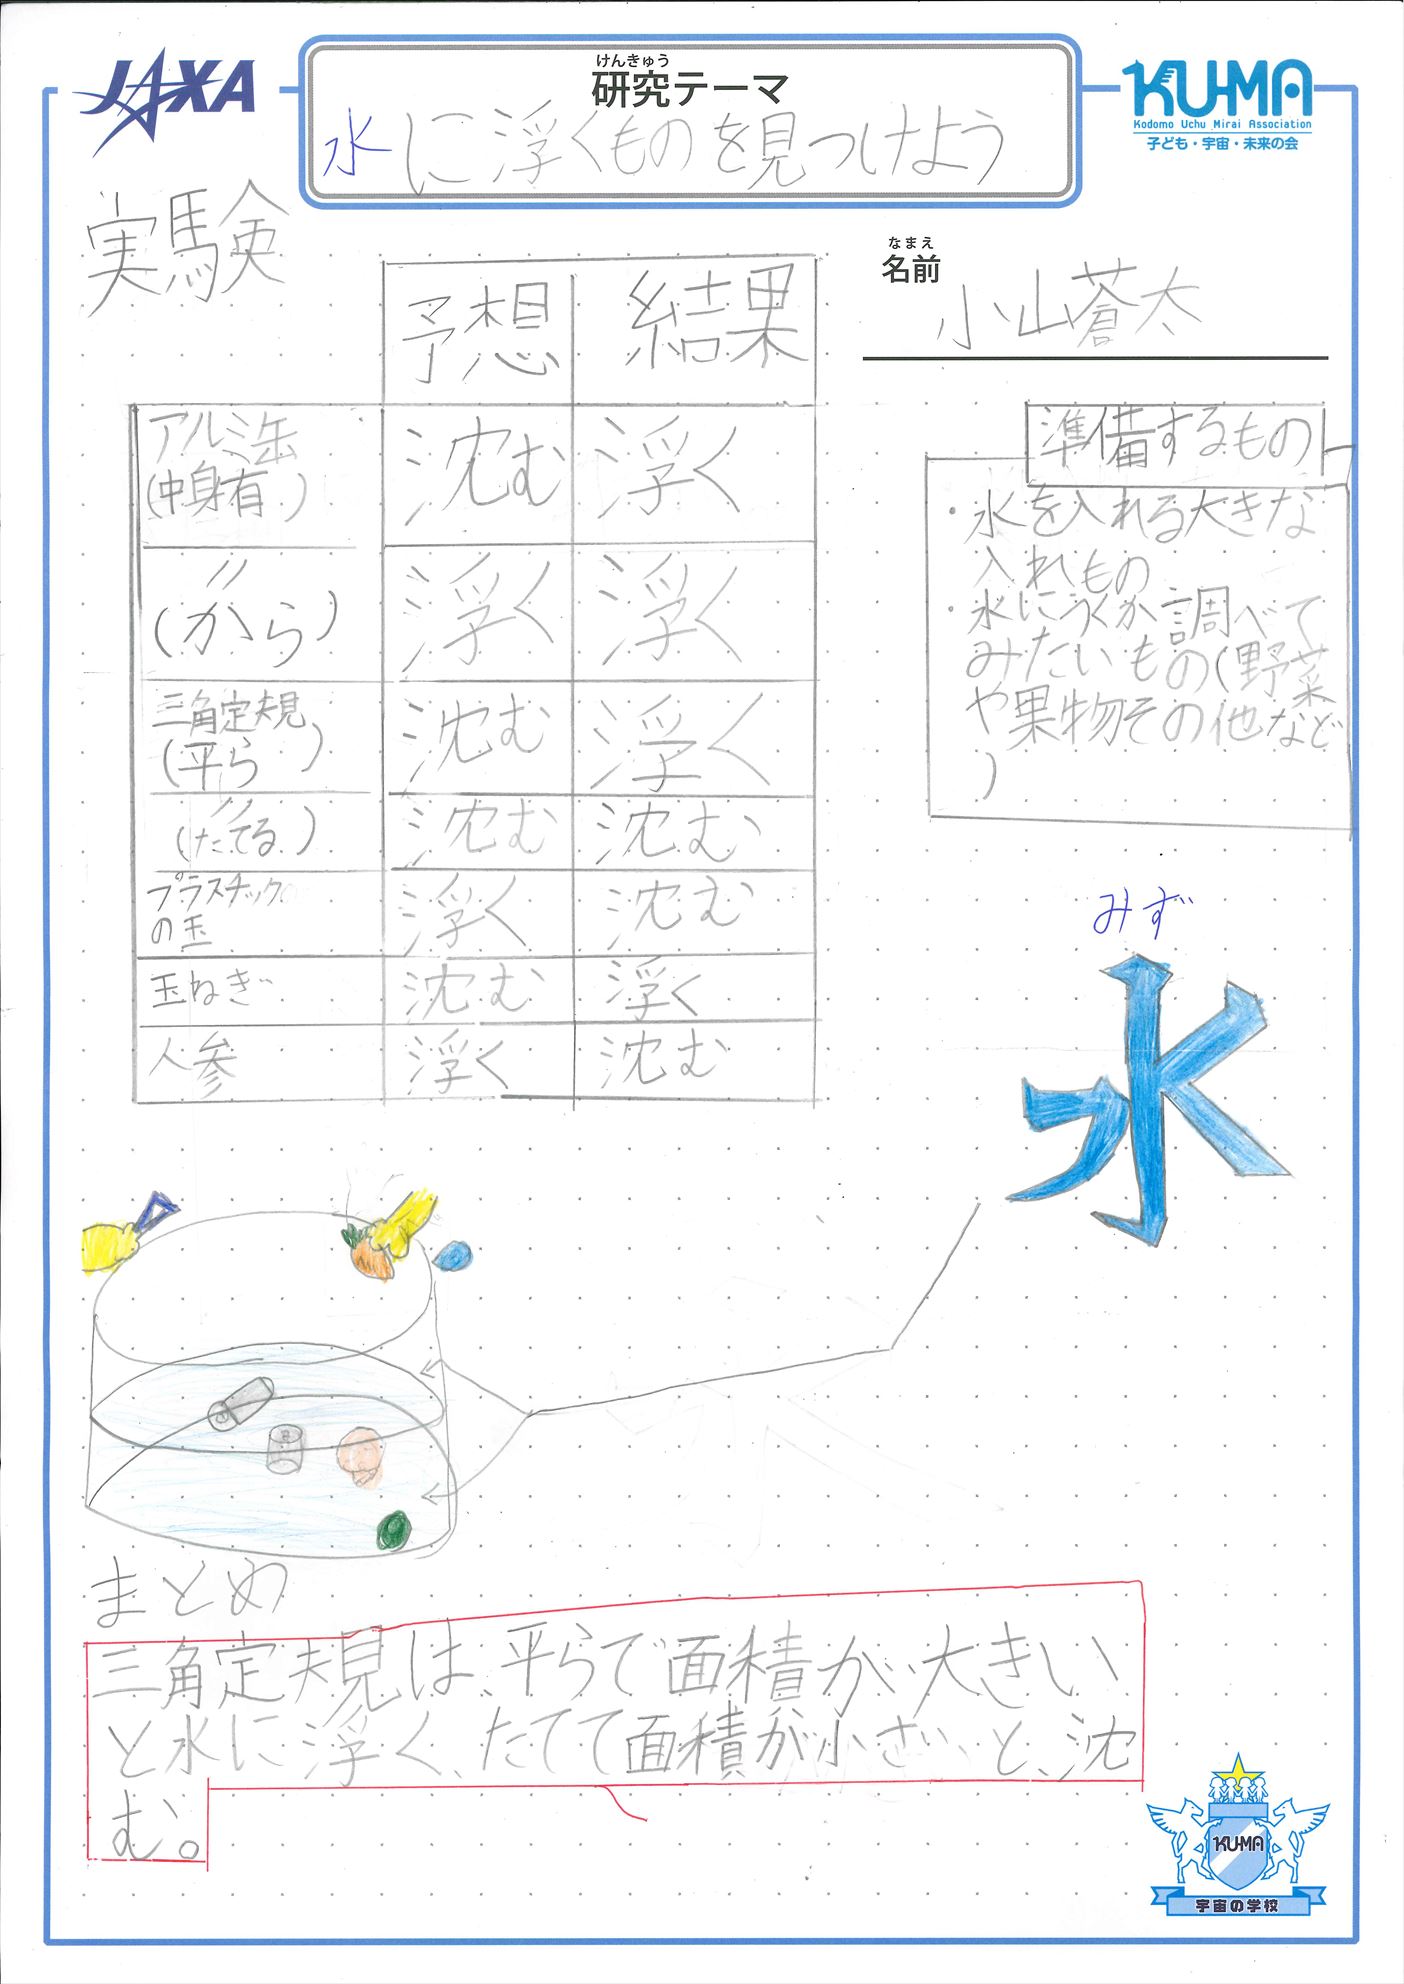 JAXA
けんきゅう
研究テーマ
水に浮くものを見つけよう
KUMA
Kodomo Uchu Mirai Association
子ども・宇宙・未来の会
実験
なまえ
名前
小山蒼太
予想 結果
アルミ缶(中身有) 沈む 浮く
〃(から) 浮く 浮く
三角定規(平ら) 沈む 浮く
〃(たてる) 沈む 沈む
プラスチックの玉 浮く 沈む
玉ねぎ 沈む 浮く
人参 浮く 沈む
準備するもの
・水を入れる大きな
入れもの
・水にうくか調べて
みたいもの(野菜
や果物その他など
)
みず
水
まとめ
三角定規は、平らで面積が大きい
と水に浮く、たてて面積が小さいと、沈
む。
KUMA
宇宙の学校